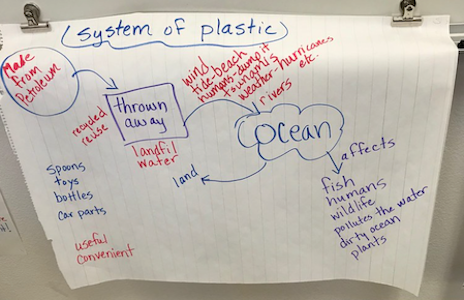 (system of plastic)
Made
from
Petroleum
wind
tide-beach
humans-dump it
tsunamis
weather-hurricanes
etc.
rivers
thrown
away
recycled
reuse
landfil
water
ocean
land
affects
fish
humans
wildlife
pollutes the water
dirty ocean
plants
spoons
toys
bottles
car parts
useful
convenient